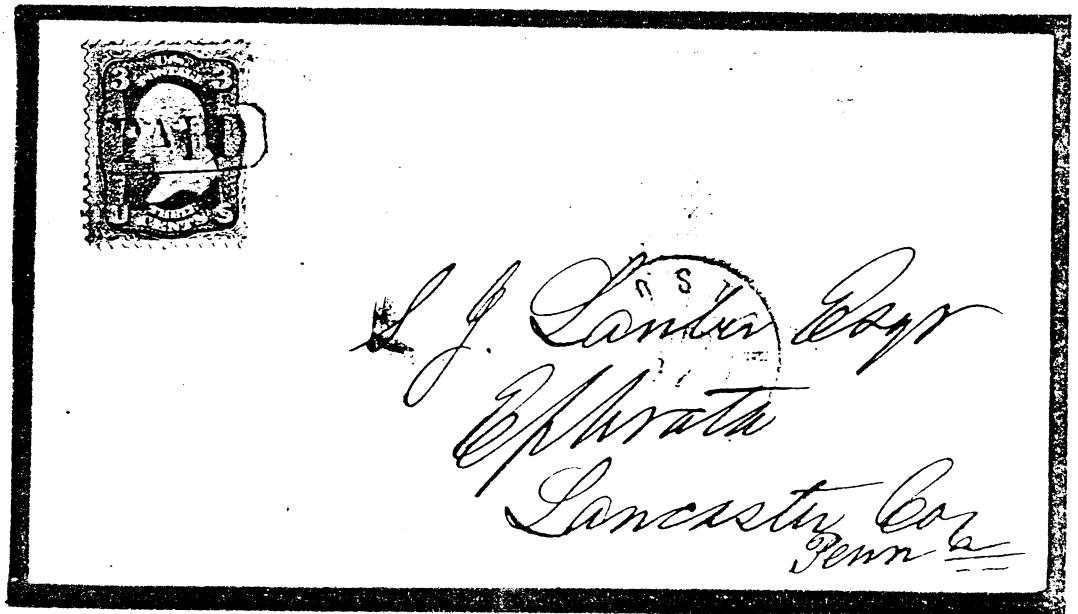 U.S.
3 3
PAID
U S
CENTS
S J. Lander Esqr
Ephrata
Lancaster Co,
Penn a